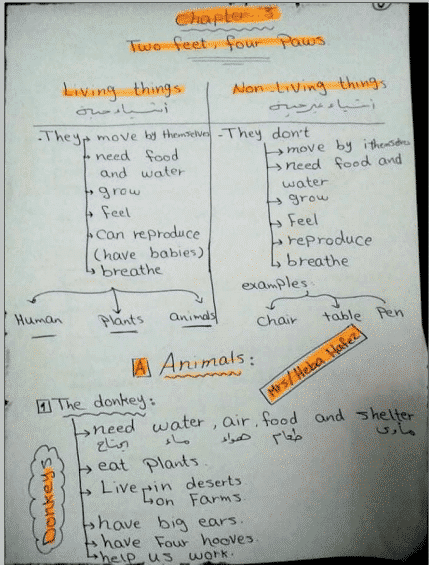 Chapter 3
Two feet, four Paws
Living things
أشياء حية
- They move by themselves
need food
and water
grow
feel
can reproduce
(have babies)
breathe
Human Plants animals
Non-Living things
أشياء غير حية
- They don't
move by themselves
need food and
water
grow
Feel
reproduce
breathe
examples:
chair table Pen
A Animals:
Mrs/Heba Hafez
1 The donkey:
need water, air, food and shelter
يحتاج ماء هواء طعام مأوى
eat plants.
Live in deserts
on Farms.
have big ears.
have Four hooves.
help us work.
Donkeys